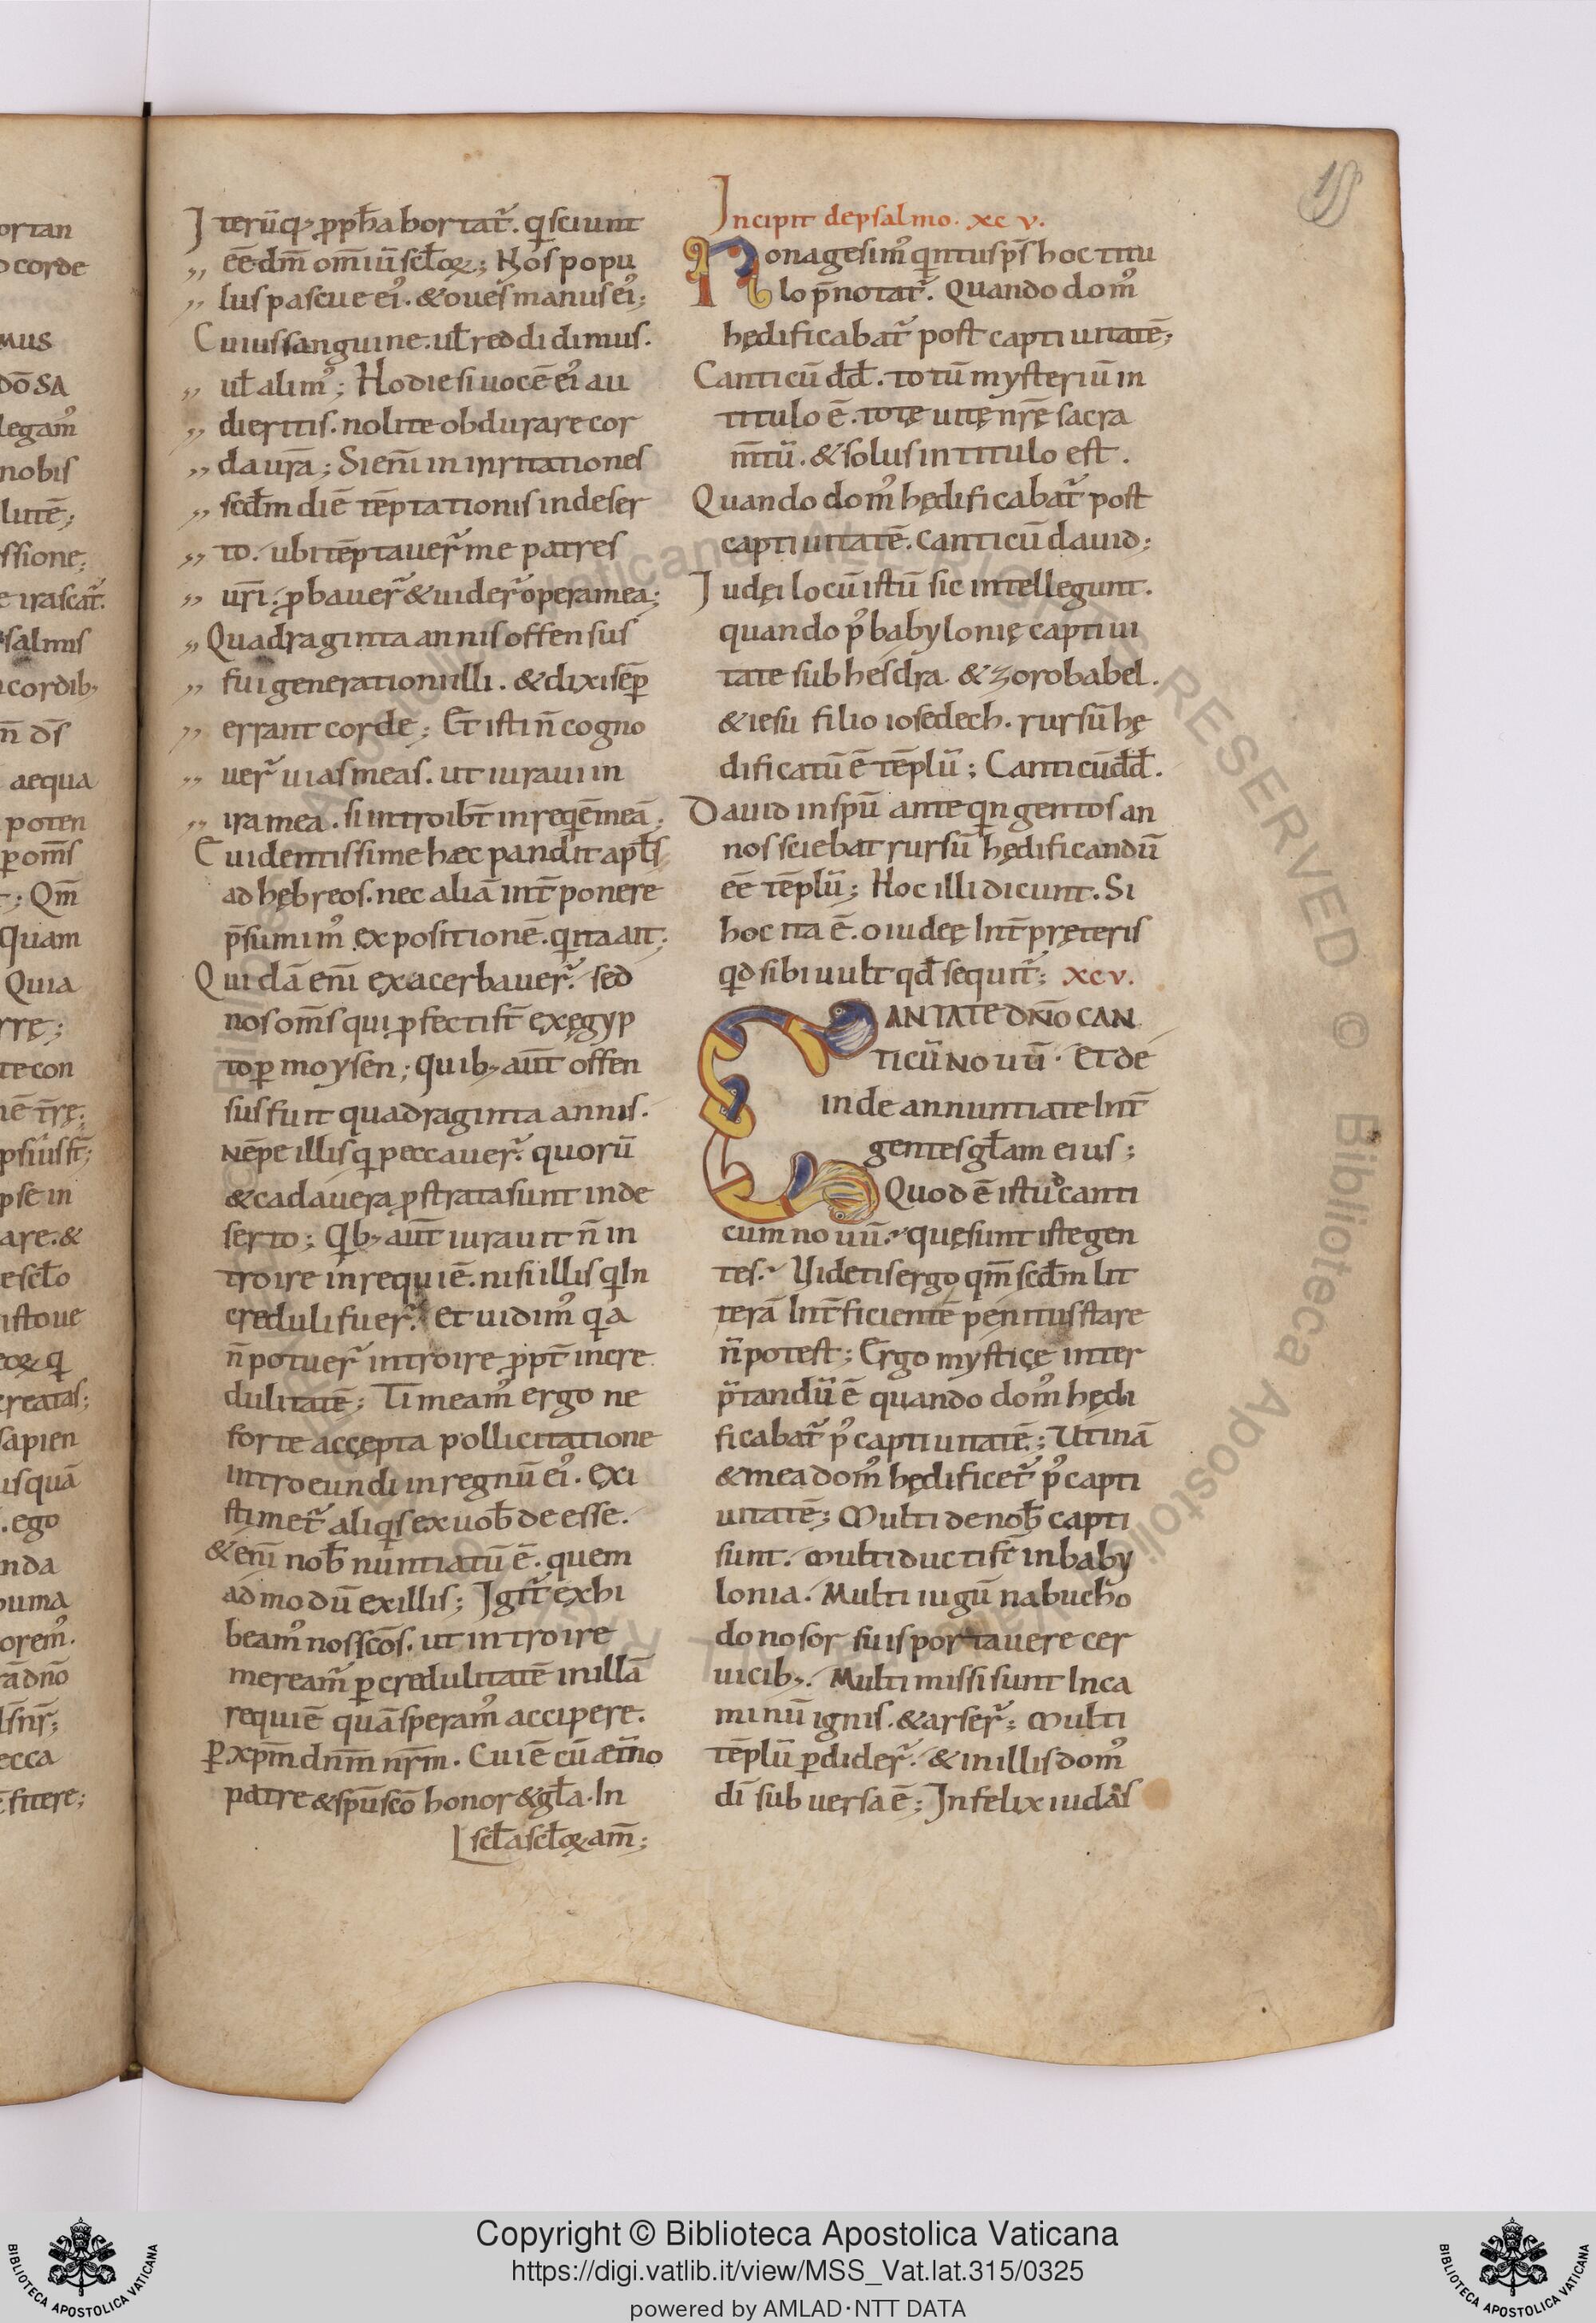 Iterū q; ꝓpħa hortat᷑. q̇ sciunt
„ eē dm̄ om̄iū scl̄oꝝ; Nos popu
„ lus pascue ei᷒. & oues manus ei᷒;
Cuius sanguine. ut̄ reddidimus.
„ ut̄ alim᷒; Hodie si uocē ei᷒ au
„ dieritis. nolite obdurare cor
„ da ur̄a; Si eni̅ in inritationes
„ scd̄m diē tēptationis in deser
„ to. ubi tēptauer᷑ me patres
„ ur̄i. ꝓbauer᷑ & uider᷑ opera mea;
„ Quadraginta annis offensus
„ fui generationi illi. & dixi sēp̄
„ errant corde; Et isti n̄ cogno
„ uer᷑ uias meas. ut iuraui in
„ ira mea. si introibt̄ in reqēm meā;
Euidentissime hæc pandit apl̄s
ad hębreos. nec aliā int̄ponere
p̄sumim᷒ expositionē. q̇ ita ait;
Quidā eni̅ exacerbauer᷑. sed
nos om̄s qui ꝓfecti st̄ ex ęgyp
to ꝑ moysen; quib; aut̄ offen
sus fuit quadraginta annis.
Nēpe illis q̇ peccauer᷑. quorū
& cadauera ꝓstrata sunt in de
serto; Q̇b; aut̄ iurauit n̄ in
troire in requiē. nisi illis q̇ In
creduli fuer᷑. Et uidim᷒ q̇a
n̄ potuer᷑ introire ꝓpt̄ incre
dulitatē; Timeam᷒ ergo ne
forte accępta pollicitatione
introeundi in regnū ei᷒. exi
stimet᷑ aliq̇s ex uob̄ deesse.
& eni̅ nob̄ nuntiatū ē. quem
ad modū ex illis; Igit᷑ exhi
beam᷒ nos scōs. ut introire
mereamr᷑ ꝑ credulitatē in illā
requiē quā speram᷒ accipere.
ꝑ xp̄m dn̄m nr̄m. Cui ē cū æt̄no
patre & sp̄u scō honor & gl̄a. In
scl̄a scl̄oꝝ am̄;
Incipit de psalmo. xc v.
Nonagesim᷒ q̇ntus ps̄ hoc titu
lo p̄notat᷑. Quando dom᷒
hędificabat᷑ post captiuitatē;
Canticū dd̄. totū mysteriū in
titulo ē. totę uitę nr̄ę sacra
m̄tū. & solus in titulo est.
Quando dom᷒ hędificabat᷑ post
captiuitatē. Canticū dauid;
Iudęi locū istū sic intellegunt.
quando p᷒ babylonię captiui
tate sub hesdra. & zorobabel.
& iesu filio iosedech. rursū hę
dificatū ē tēplū; Canticū dd̄.
Dauid in sp̄u ante q̇ngentos an
nos sciebat rursū hędificandū
eē tēplū; Hoc illi dicunt. Si
hoc ita ē. o iudeę Int̄pręteris
qd̄ sibi uult qd̄ sequit᷑; xc v.
CANTATE DN̄O CAN
TICŪ NOUŪ. Et de
inde annuntiate Int̄
gentes gl̄am eius;
Quod ē istud canti
cum nouū. quę sunt istę gen
tes. Uidetis ergo qm̄ scd̄m lit
terā Int̄ficientē penitus stare
n̄ potest; Ergo mysticę inter
p̄tandū ē quando dom᷒ hędi
ficabat᷑ p᷒ captiuitatē; Utinā
& mea dom᷒ hędificet᷑ p᷒ capti
uitatē; Multi de nob̄ capti
sunt. Multi ducti st̄ in baby
lonia. Multi iugū nabucho
donosor suis portauere cer
uicib;. Multi missi sunt In ca
minū ignis. & arser᷑; Multi
tēplū ꝑdider᷑. & in illis dom᷒
dī subuersa ē; Infelix iudas
Copyright © Biblioteca Apostolica Vaticana
https://digi.vatlib.it/view/MSS_Vat.lat.315/0325
powered by AMLAD·NTT DATA